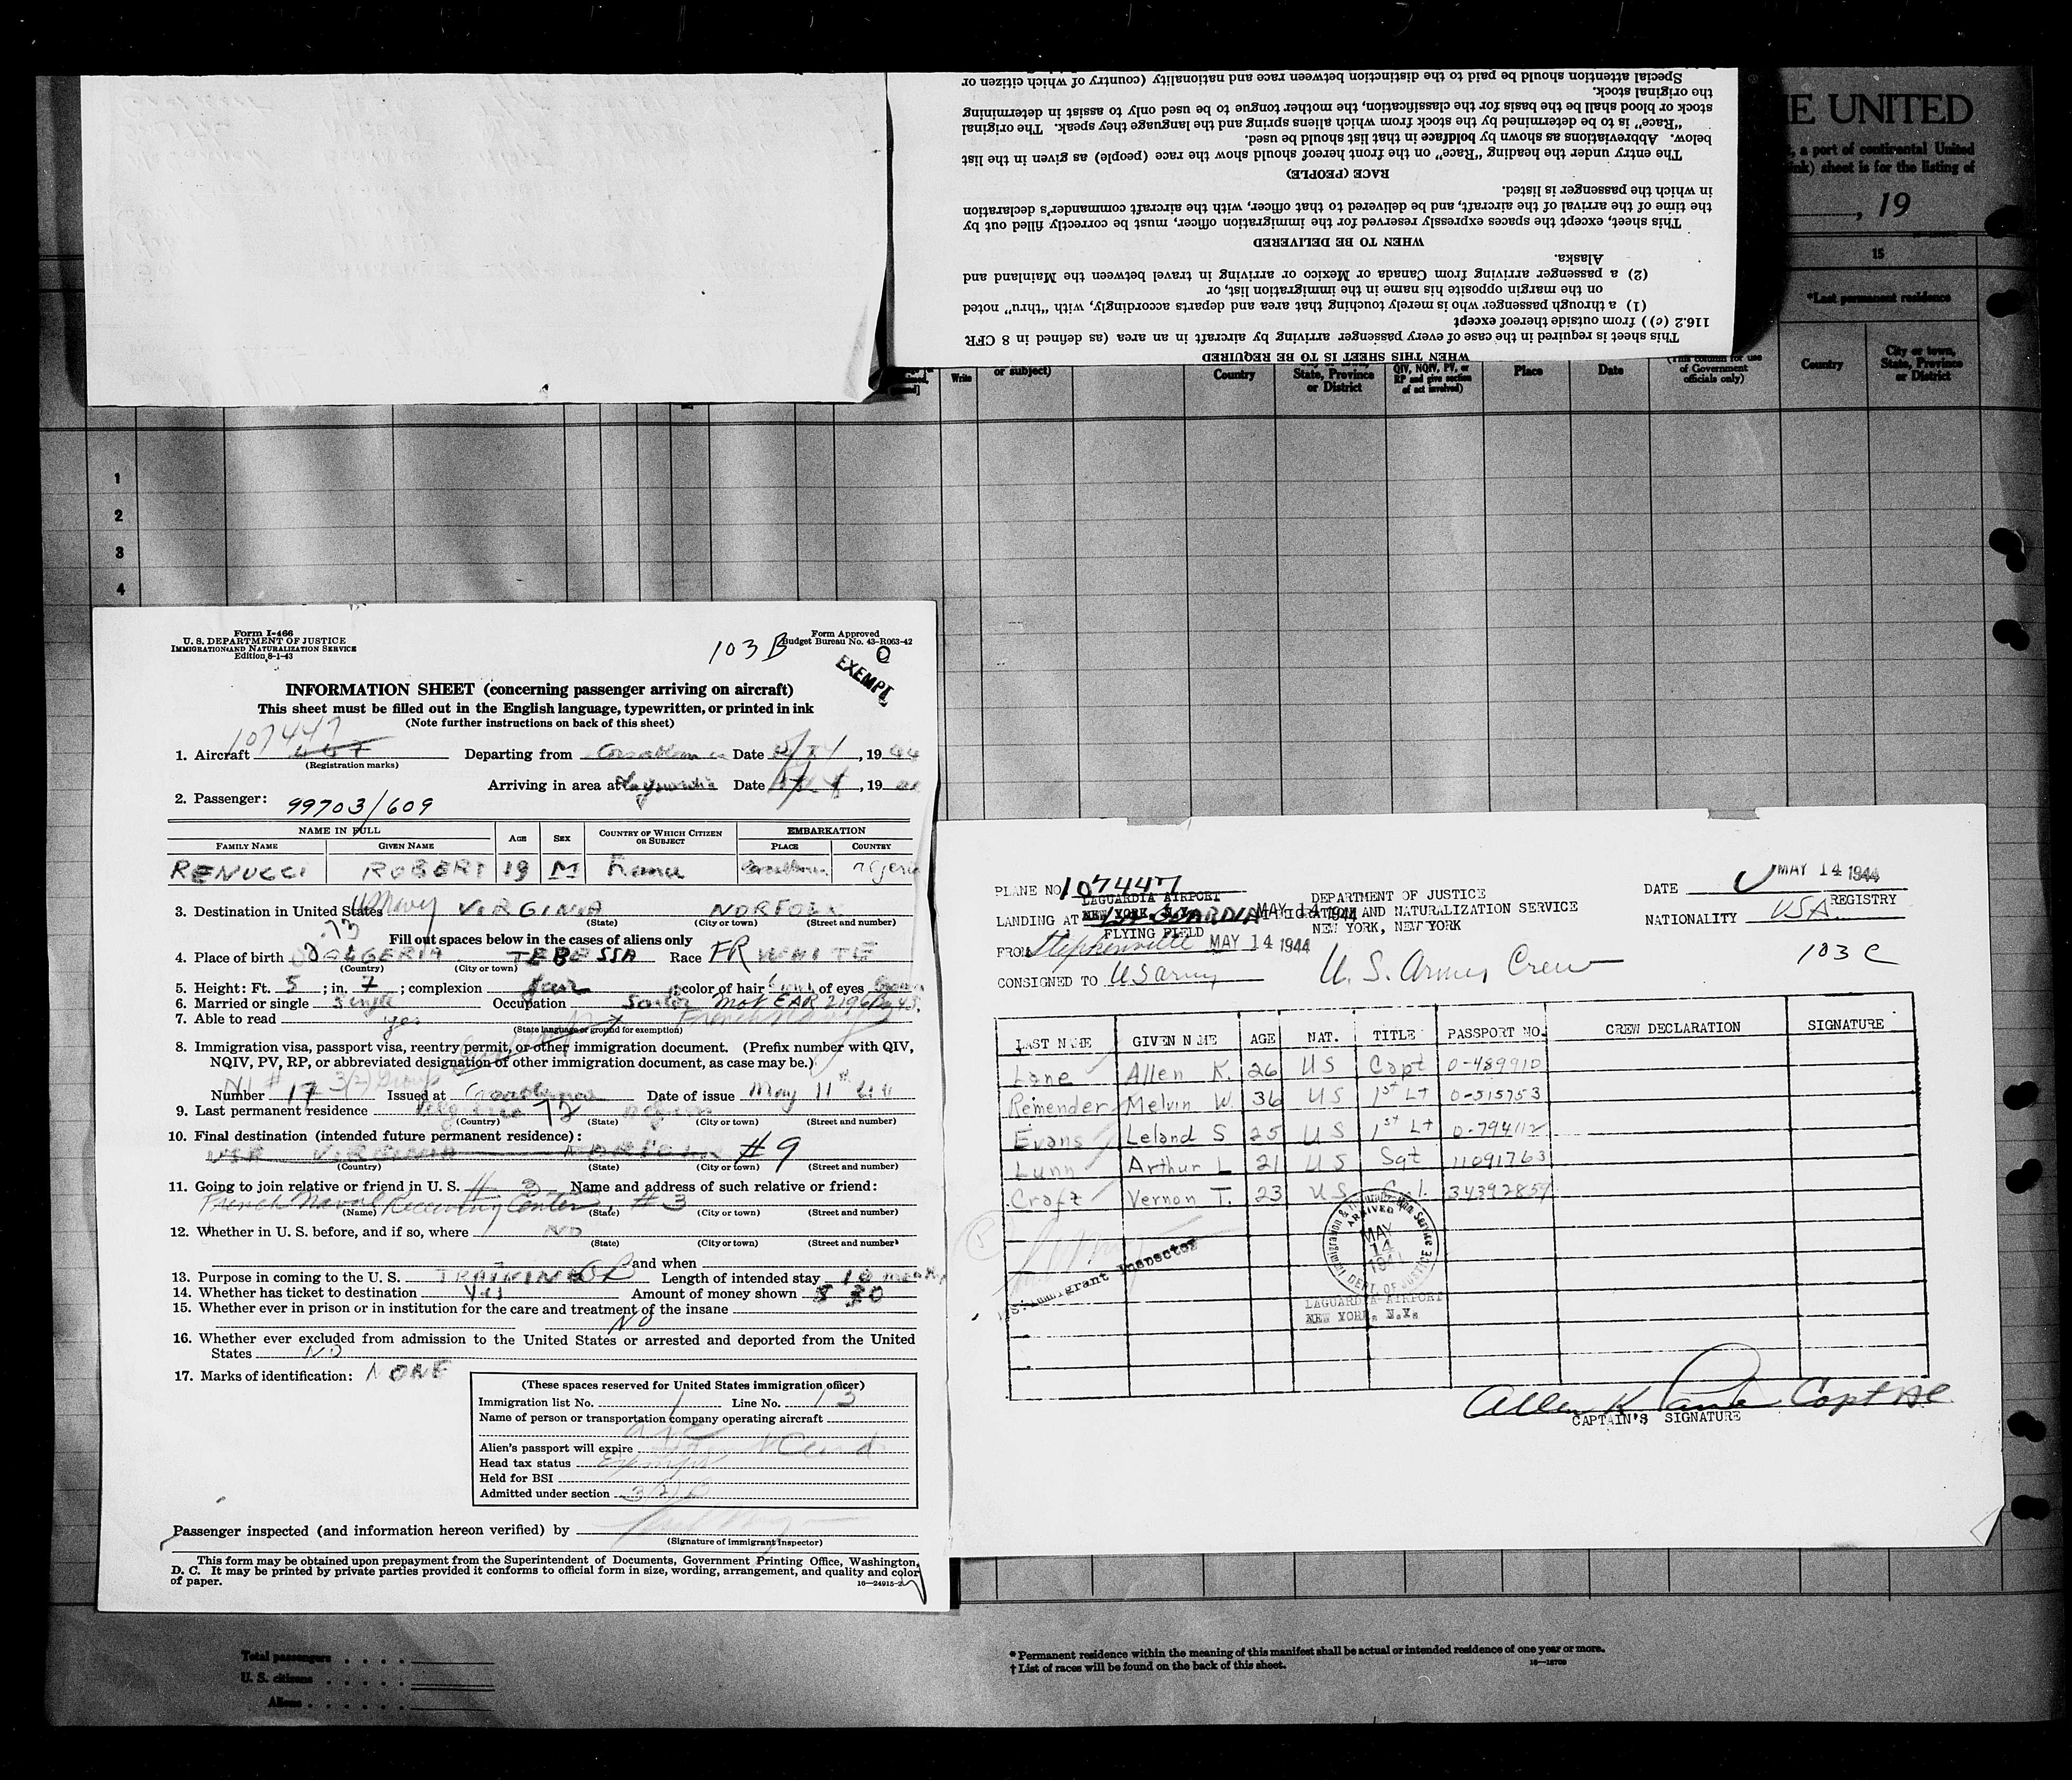 Special attention should be paid to the distinction between race and nationality (country of which citizen or
the original stock.
stock or blood shall be the basis for the classification, the mother tongue to be used only to assist in determining
"Race" is to be determined by the stock from which aliens spring and the language they speak. The original
below. Abbreviations as shown by boldface in that list should be used.
The entry under the heading "Race" on the front hereof should show the race (people) as given in the list
RACE (PEOPLE)
in which the passenger is listed.
the time of the arrival of the aircraft, and be delivered to that officer, with the aircraft commander's declaration
This sheet, except the spaces expressly reserved for the immigration officer, must be correctly filled out by
WHEN TO BE DELIVERED
Alaska.
(2) a passenger arriving from Canada or Mexico or arriving in travel between the Mainland and
on the margin opposite his name in the immigration list, or
(1) a through passenger who is merely touching that area and departs accordingly, with "thru" noted
116.2 (c)) from outside thereof except
This sheet is required in the case of every passenger arriving by aircraft in an area (as defined in 8 CFR
WHEN THIS SHEET IS TO BE REQUIRED
E UNITED
, a part of continental United
ink) sheet is for the listing of
, 19
15
*Last permanent residence
Write
or subject)
Country
State, Province
or District
QIV, NQIV, PV, or
RP and give section
of act involved)
Place
Date
(This column for use
of Government
officials only)
Country
City or town,
State, Province
or District
1
2
3
4
Form I-466
U. S. DEPARTMENT OF JUSTICE
IMMIGRATION AND NATURALIZATION SERVICE
Edition 8-1-43
103 B
Form Approved
Budget Bureau No. 43-R063-42
EXEMPT
INFORMATION SHEET (concerning passenger arriving on aircraft)
This sheet must be filled out in the English language, typewritten, or printed in ink
(Note further instructions on back of this sheet)
107447
1. Aircraft 447 Departing from Casablanca Date , 19 44
(Registration marks)
Arriving in area at Laguardia Date , 19
2. Passenger: 99703/609
NAME IN FULL AGE SEX COUNTRY OF WHICH CITIZEN OR SUBJECT EMBARKATION
FAMILY NAME GIVEN NAME PLACE COUNTRY
RENUCCI ROBERT 19 M France Casablanca Algeria
3. Destination in United States VIRGINIA NORFOLK
(State) (City or town) (Street and number)
Fill out spaces below in the cases of aliens only
4. Place of birth ALGERIA TEBESSA Race FR WHITE
(Country) (City or town)
5. Height: Ft. 5 ; in. 7 ; complexion fair ; color of hair of eyes
6. Married or single single Occupation Sailor
7. Able to read yes
(State language or ground for exemption)
8. Immigration visa, passport visa, reentry permit, or other immigration document. (Prefix number with QIV,
NQIV, PV, RP, or abbreviated designation of other immigration document, as case may be.)
Number 17 Issued at Casablanca Date of issue May 11th 44
9. Last permanent residence 72
(Country) (State) (City or town) (Street and number)
10. Final destination (intended future permanent residence):
USA VIRGINIA NORFOLK #9
(Country) (State) (City or town) (Street and number)
11. Going to join relative or friend in U. S. Name and address of such relative or friend:
French Naval Receiving Center, #3
(Name) (State) (City or town) (Street and number)
12. Whether in U. S. before, and if so, where NO
(State) (City or town) (Street and number)
and when
13. Purpose in coming to the U. S. TRAINING Length of intended stay 10 months
14. Whether has ticket to destination Yes Amount of money shown $ 30
15. Whether ever in prison or in institution for the care and treatment of the insane
NO
16. Whether ever excluded from admission to the United States or arrested and deported from the United
States NO
17. Marks of identification: NONE
(These spaces reserved for United States immigration officer)
Immigration list No. 1 Line No. 13
Name of person or transportation company operating aircraft
Alien's passport will expire
Head tax status Exempt
Held for BSI
Admitted under section 3(2)
Passenger inspected (and information hereon verified) by
(Signature of immigrant inspector)
This form may be obtained upon prepayment from the Superintendent of Documents, Government Printing Office, Washington,
D. C. It may be printed by private parties provided it conforms to official form in size, wording, arrangement, and quality and color
of paper.
16—24915-2
PLANE NO. 107447
LAGUARDIA AIRPORT
NEW YORK, N.Y.
LANDING AT LA GUARDIA MAY 14 1944
FLYING FIELD
FROM Stephenville MAY 14 1944
CONSIGNED TO US Army
DEPARTMENT OF JUSTICE
IMMIGRATION AND NATURALIZATION SERVICE
NEW YORK, NEW YORK
U. S. Army Crew
DATE MAY 14 1944
REGISTRY
NATIONALITY USA
103 C
LAST NAME GIVEN NAME AGE NAT. TITLE PASSPORT NO. CREW DECLARATION SIGNATURE
Lane Allen K. 26 US Capt 0-489910
Remender Melvin W 36 US 1st Lt 0-515753
Evans Leland S 25 US 1st Lt 0-794112
Lunn Arthur L 21 US Sgt 11091763
Croft Vernon T. 23 US Cpl. 34392859
U.S. Immigrant Inspector
Immigration & Naturalization Service
ARRIVED
MAY
14
1944
DEPT. OF JUSTICE
LAGUARDIA AIRPORT
NEW YORK, N.Y.
Allen K Lane Capt AC
CAPTAIN'S SIGNATURE
Total passengers
U. S. citizens
Aliens
* Permanent residence within the meaning of this manifest shall be actual or intended residence of one year or more.
† List of races will be found on the back of this sheet.
16—18709